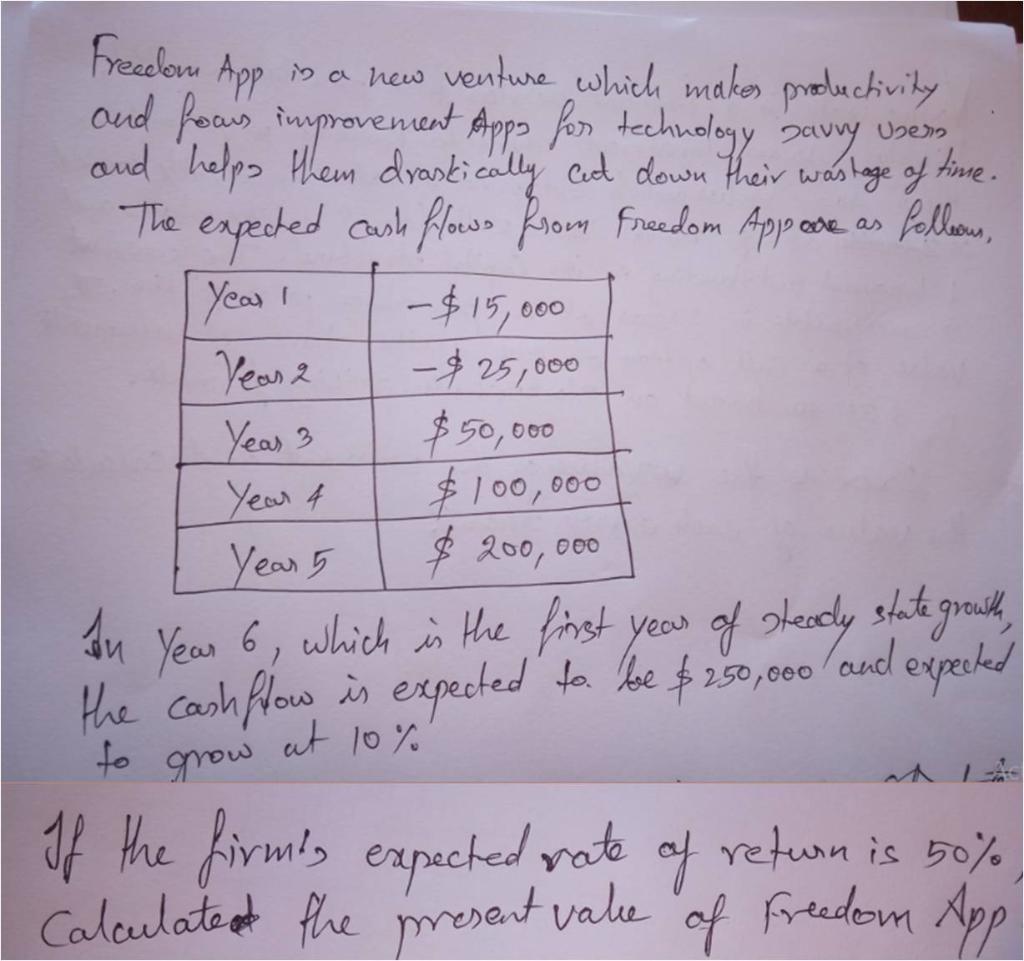 Freedom App is a new venture which makes productivity
and focus improvement Apps for technology savvy users
and helps them drastically cut down their wastage of time.
The expected cash flows from Freedom App are as follows,
Year 1 -$ 15,000
Year 2 -$ 25,000
Year 3 $ 50,000
Year 4 $ 100,000
Year 5 $ 200,000
In Year 6, which is the first year of steady state growth,
the cashflow is expected to be $ 250,000 and expected
to grow at 10%
If the firm's expected rate of return is 50%,
Calculate the present value of Freedom App